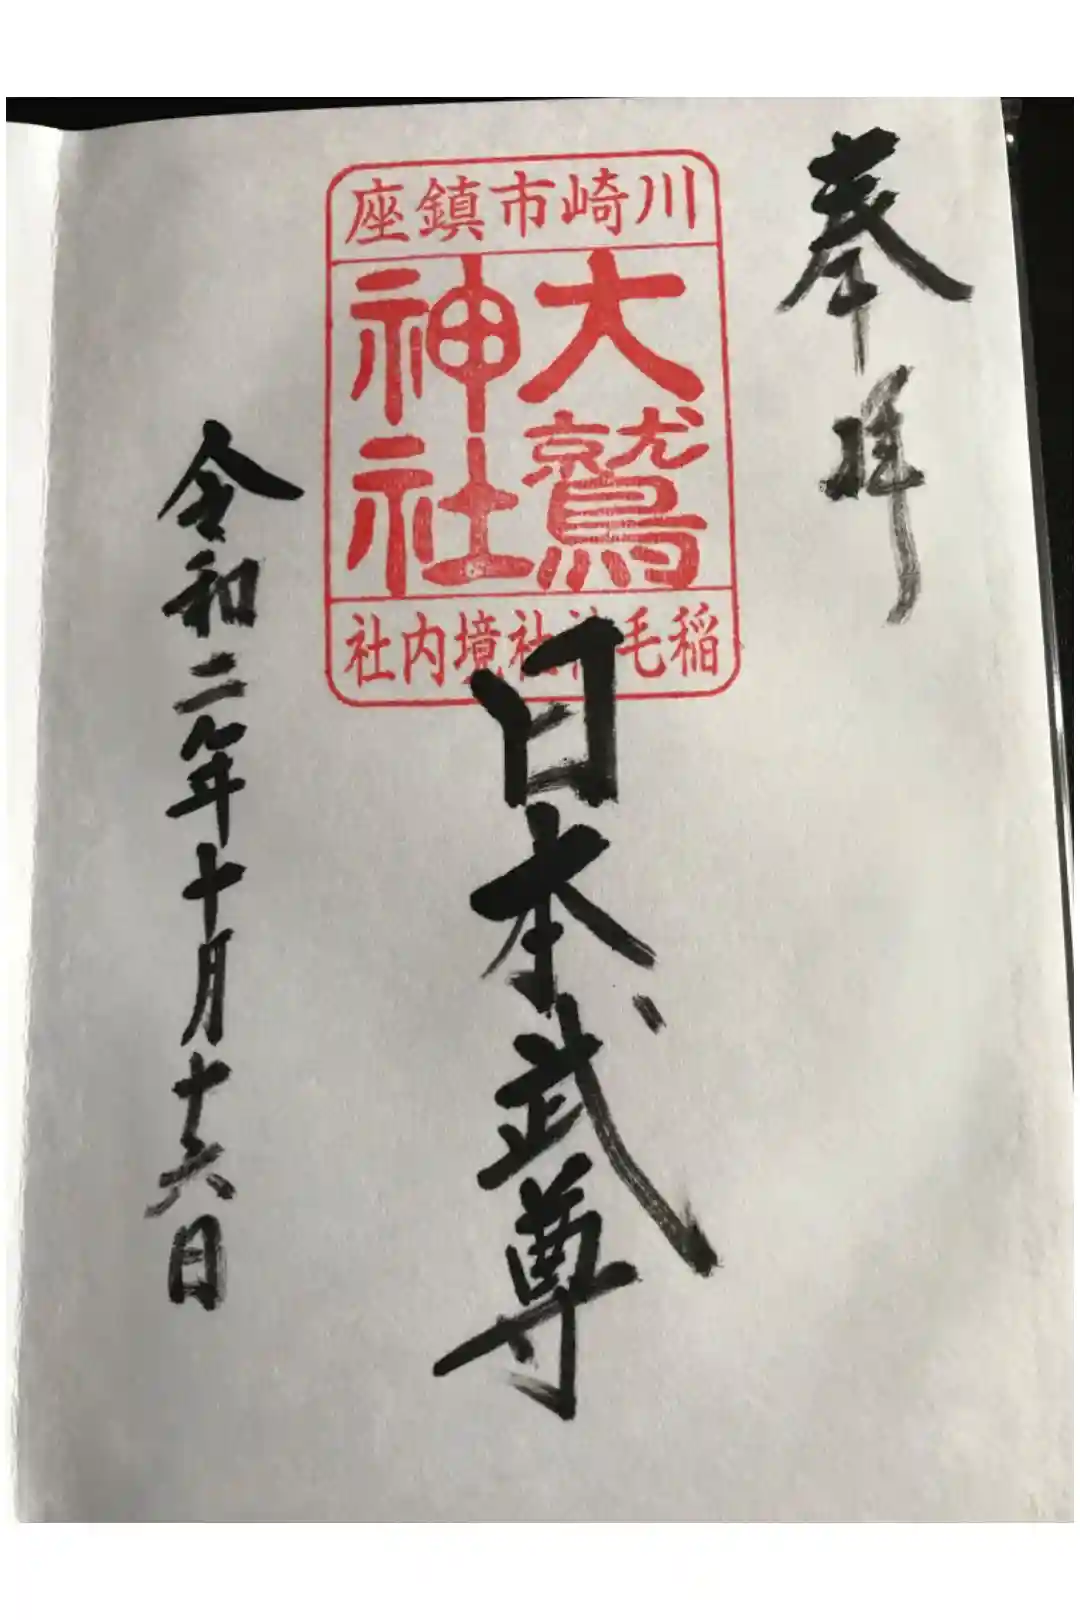 奉拝
川崎市鎮座
大鷲
神社
稲毛神社境内社
日本武尊
令和二年十月十六日